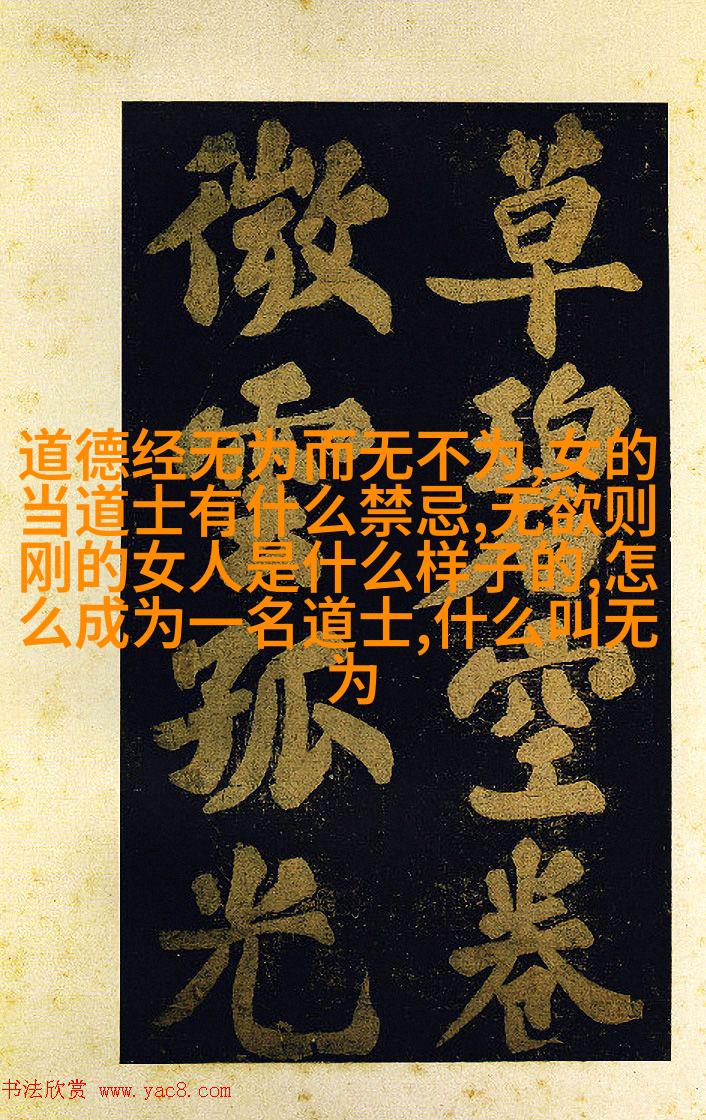 草碧空卷
微雲孤光
道德经无为而无不为,女的
当道士有什么禁忌,无欲则
刚的女人是什么样子的,怎
么成为一名道士,什么叫无
为
书法欣赏 www.yac8.com